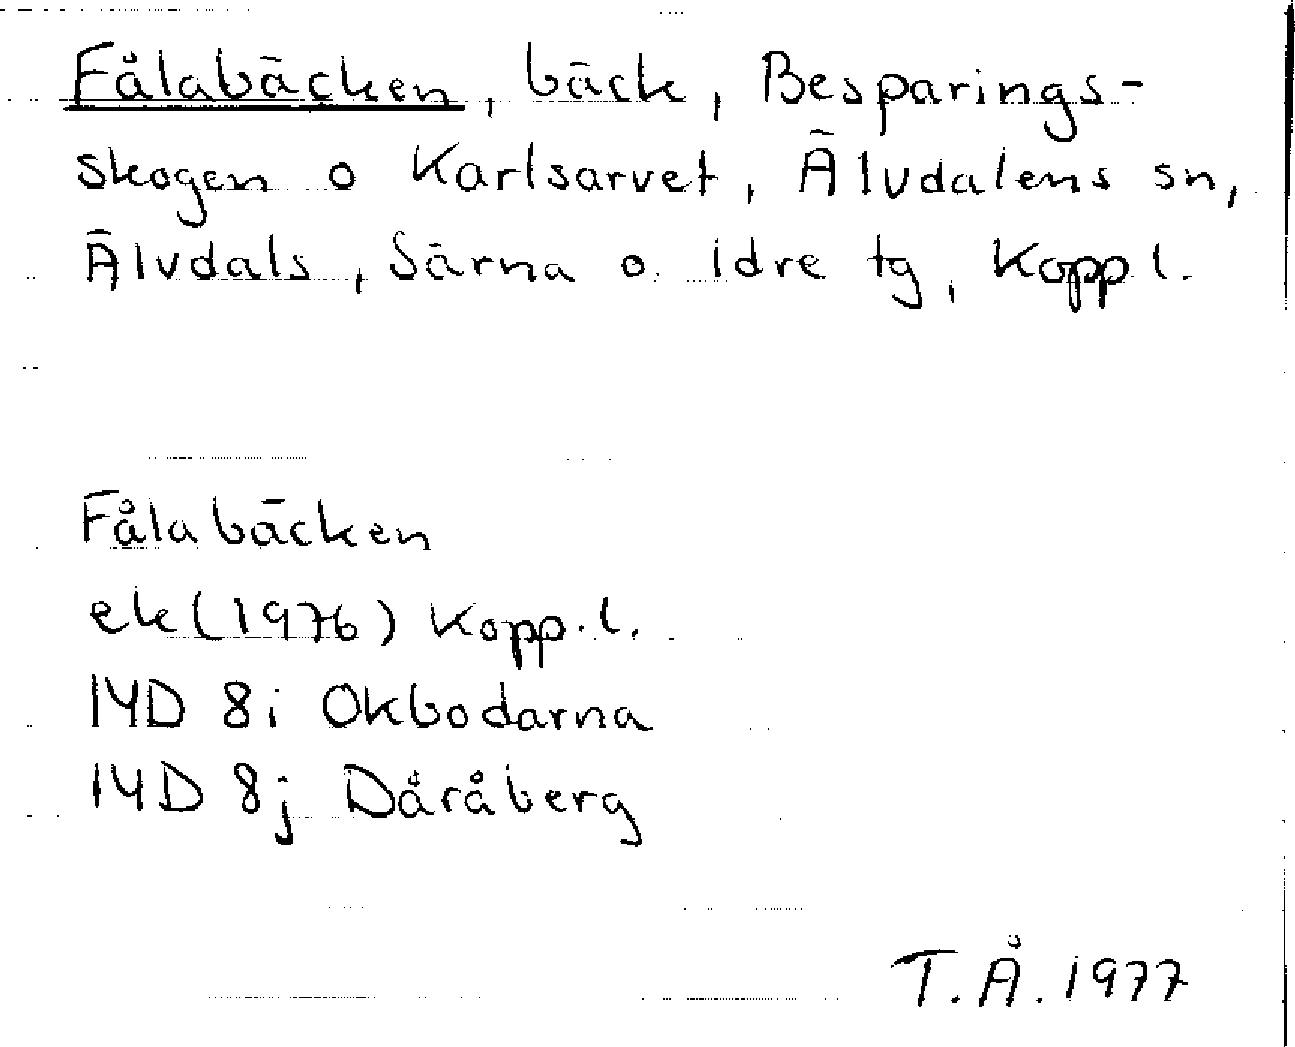 Fålabäcken, bäck, Besparings-
skogen o Karlsarvet, Älvdalens sn,
Älvdals, Särna o. Idre tg, Kopp l.
Fålabäcken
ek (1976) Kopp. l.
14D 8i Okbodarna
14D 8j Dåråberg
T.Å. 1977